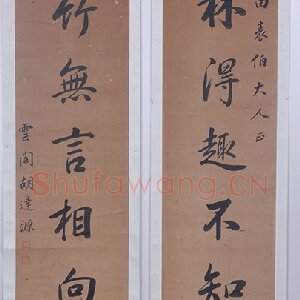 表伯大人正
林得趣不知
竹無言相向
雲閣胡達源
Shufawang.CN